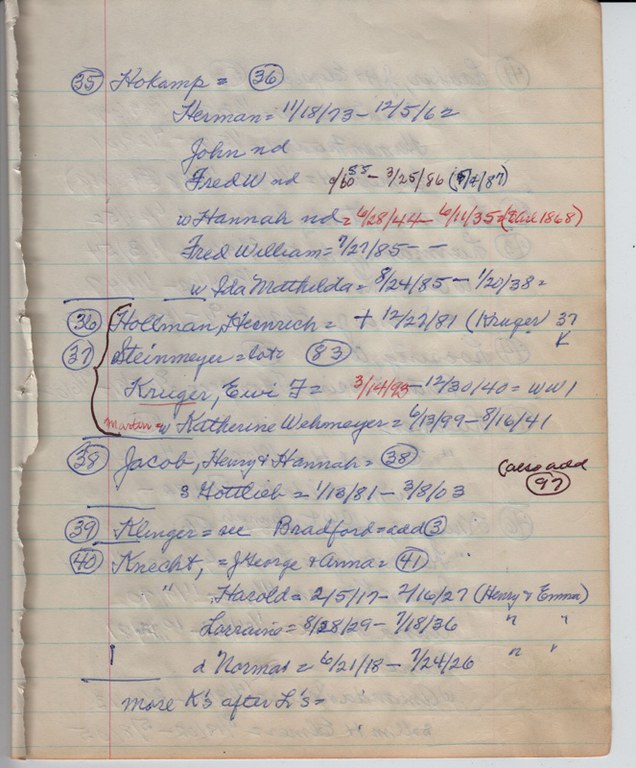 35 Hokamp = 36
Herman = 11/18/73 - 12/5/62
John nd
Fred W nd 9/60 55 - 3/25/86 (5/7/87)
w Hannah nd = 6/28/44 - 6/11/35 1868)
Fred William = 7/27/85 - -
w Ida Mathilda = 8/24/85 - 1/20/38 =
36 Hollman, Heinrich = + 12/27/81 (Kruger) 37
37 Steinmeyer = lotz 83 K
Kruger, Ewi F = 3/14/93 - 12/30/40 = WW1
w Katherine Wehmeyer = 6/13/99 - 8/16/41
38 Jacob, Henry & Hannah = 38 (also add 97)
s Gottlieb = 1/13/81 - 3/8/03
39 Klinger = see Bradford = add 3
40 Knecht, = J George & Anna = 41
" Harold = 2/5/17 - 2/16/27 (Henry & Emma)
Lorraine = 8/28/29 - 7/18/36 " "
d Norma = 6/21/18 - 7/24/26 " "
more K's after L's =